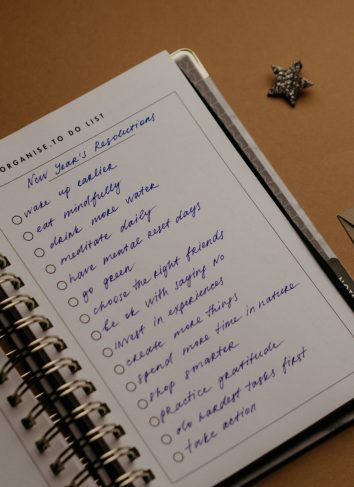 ORGANISE.TO DO LIST
New Year's Resolutions
wake up earlier
eat mindfully
drink more water
meditate daily
have mental reset days
go green
choose the right friends
be ok with saying no
invest in experiences
create more things
spend more time in nature
shop smarter
practice gratitude
do hardest tasks first
take action